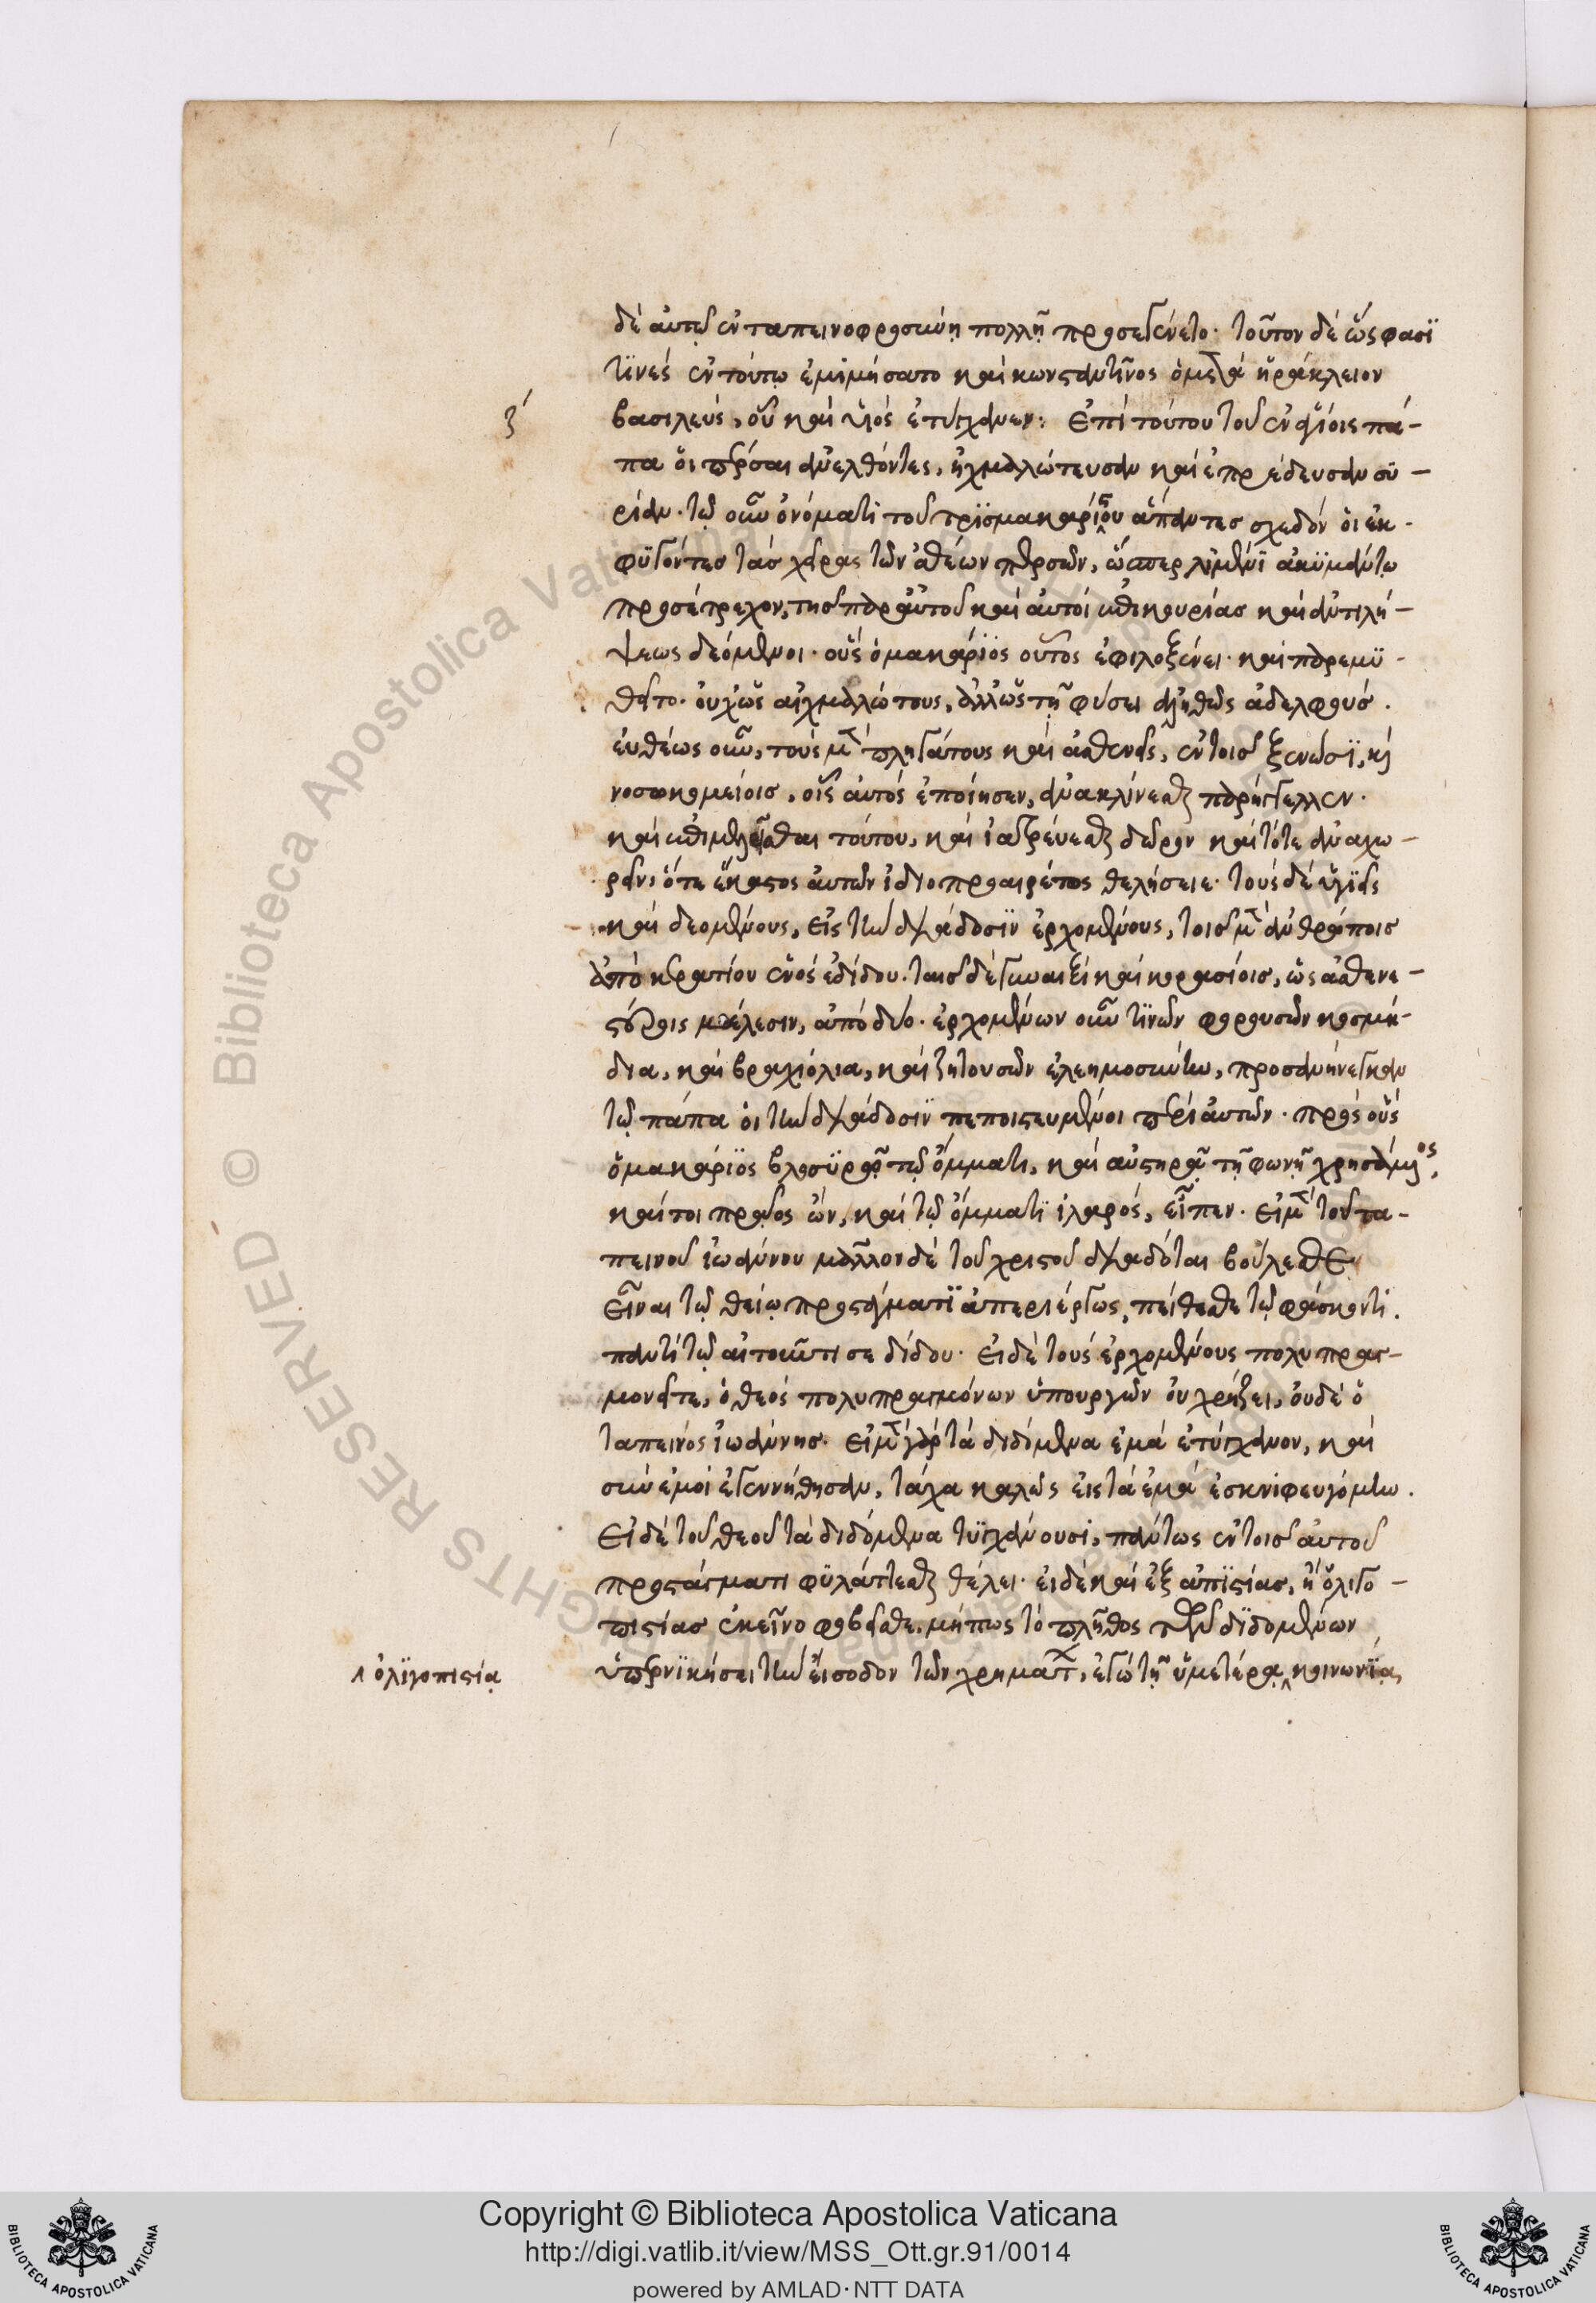 δὲ αὐτῷ ἐν ταπεινοφροσύνῃ πολλῇ προσεγένετο· τοῦτον δὲ ὥς φασϊ
τϊνὲς ἐν τούτῳ ἐμιμήσατο καὶ κωνσταντῖνος ὁ μετὰ ἡράκλειον
ζ´
βασιλεύς, οὗ καὶ ὑϊὸς ἐτύγχανεν: Ἐπὶ τούτου τοῦ ἐν ἁγίοις πά-
πα οἱ πέρσαι ἀνελθόντες, ἠχμαλώτευσαν καὶ ἐπρέδευσαν συ-
ρίαν· τῷ οὖν ὀνόματι τοῦ τρϊσμακαρίου ἅπαντες σχεδὸν οἱ ἐκ-
φϋγόντες τὰς χεῖρας τῶν ἀθέων περσῶν, ὥσπερ λϊμένϊ ἀκϋμάντῳ
προσέτρεχον, τῆς παρ αὐτοῦ καὶ αὐτοὶ ἐπικουρίας καὶ ἀντιλή-
ψεως δεόμενοι· οὓς ὁ μακάρϊος οὗτος ἐφιλοξένει· καὶ παρεμϋ-
θεῖτο· οὐχ ὡς αἰχμαλώτους, ἀλλ ὡς τῇ φύσει ἀληθῶς ἀδελφούς.
εὐθέως οὖν, τοὺς μὲν πληγάτους καὶ ἀσθενεῖς, ἐν τοῖς ξενῶσϊ, καὶ
νοσοκομείοις, οἷς αὐτὸς ἐποίησεν, ἀνακλίνεσθαι παρήγγελλεν·
καὶ ἐπιμελεῖσθαι τούτου, καὶ ἰατρεύεσθαι δῶρον καὶ τότε ἀναχω-
ρεῖν, ὅτε ἕκαστος αὐτῶν ἰδιοπροαιρέτως θελήσειε· τοὺς δὲ ὑγϊεῖς
καὶ δεομένους, εἰς τὴν διάδοσϊν ἐρχομένους, τοῖς μὲν ἀνθρώποις
ἀπὸ κερατίου ἑνὸς ἐδίδου· ταῖς δὲ γυναιξὶ καὶ κορασίοις, ὡς ἀσθενε-
στέροις μέλεσιν, ἀπὸ δύο· ἐρχομένων οὖν τϊνῶν φορουσῶν κοσμί-
δια, καὶ βραχιόλια, καὶ ζητουσῶν ἐλεημοσύνην, προσανήνεγκαν
τῷ πάπα οἱ τὴν διάδοσϊν πεπιστευμένοι περὶ αὐτῶν· πρὸς οὓς
ὁ μακάρϊος βλοσϋρῷ τῷ ὄμματι, καὶ αὐστηρᾷ τῇ φωνῇ χρησάμενος,
καίτοι πρᾶος ὤν, καὶ τῷ ὄμματϊ ἱλαρός, εἶπεν· εἰ μὲν τοῦ τα-
πεινοῦ ἰωάννου μᾶλλον δὲ τοῦ χριστοῦ διαδόται βούλεσθε
εἶναι τῷ θείῳ προστάγματϊ ἀπεριέργως, πείθεσθε τῷ φάσκοντι.
παντὶ τῷ αἰτοῦντι σε δίδου· εἰ δὲ τοὺς ἐρχομένους πολυπραγ-
μονεῖτε, ὁ θεὸς πολυπραγμόνων ὑπουργῶν οὐ χρήζει, οὐδὲ ὁ
ταπεινὸς ἰωάννης· εἰ μὲν γὰρ τὰ διδόμενα ἐμὰ ἐτύγχανον, καὶ
σὺν ἐμοὶ ἐγεννήθησαν, τάχα καλῶς εἰς τὰ ἐμὰ ἐσκνιφευγόμην.
Εἰ δὲ τοῦ θεοῦ τὰ διδόμενα τϋγχάνουσι, πάντως ἐν τοῖς αὐτοῦ
προστάγμασι φϋλάττεσθαι θέλει· εἰ δὲ καὶ ἐξ ἀπϊστίας, ἢ ὀλιγο-
πιστίας ἐκεῖνο φοβεῖσθε, μήπως τὸ πλῆθος τῶν δϊδομένων
ὑπερνϊκήσει τὴν εἴσοδον τῶν χρημάτων, ἐγὼ τῇ ὑμετέρᾳ ‸ κοινωνίας
‸ ὀλϊγοπιστίᾳ